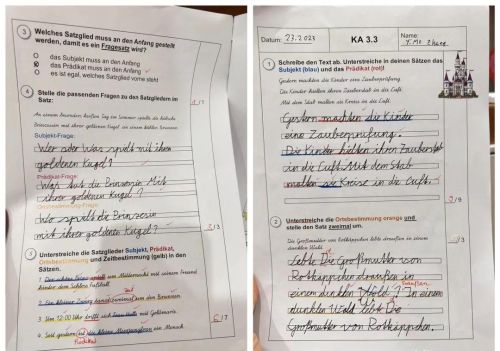 3 Welches Satzglied muss an den Anfang gestellt
werden, damit es ein Fragesatz wird?
O das Subjekt muss an den Anfang
das Prädikat muss an den Anfang
O es ist egal, welches Satzglied vorne steht
1/1
4 Stelle die passenden Fragen zu den Satzgliedern im
Satz:
An einem besonders heißen Tag im Sommer spielt die hübsche
Prinzessin mit ihrer goldenen Kugel an einem kühlen Brunnen.
Subjekt-Frage:
Wer oder Was spielt mit ihrer
goldenen Kugel?
Prädikat-Frage:
Was tut die Prinzessin Mit
ihrer goldenen Kugel?
Ortsbestimmung-Frage:
Wo spielt die Prinzessin
mit ihrer goldenen Kugel?
3/3
5 Unterstreiche die Satzglieder Subjekt, Prädikat,
Ortsbestimmung und Zeitbestimmung (gelb) in den
Sätzen.
um Mitternacht mit seinem Freund
hinter dem Schloss Fußball
2. Ein kleiner Zwerg um den Brunnen
3. Um 12:00 Uhr trifft sich mit
4. Seit gestern ist ein Mensch
Prädikat
Datum: 23.2.023
KA 3.3
Name:
1 Schreibe den Text ab. Unterstreiche in deinen Sätzen das
Subjekt (blau) und das Prädikat (rot)!
Gestern machten die Kinder eine Zauberprüfung.
Die Kinder hielten ihren Zauberstab in die Luft.
Mit dem Stab malten sie Kreise in die Luft.
Gestern machten die Kinder
eine Zauberprüfung.
Die Kinder hielten ihren Zauberstab
in die Luft. Mit dem Stab
malten sie Kreise in die Luft.
9/9
2 Unterstreiche die Ortsbestimmung orange und
stelle den Satz zweimal um.
Die Großmutter von Rotkäppchen lebte draußen in einem
dunklen Wald.
Lebte Die Großmutter von
Rotkäppchen draußen in
einem dunklen Wald? In einem
draußen
dunklen Wald lebt Die
Großmutter von Rotkäppchen.